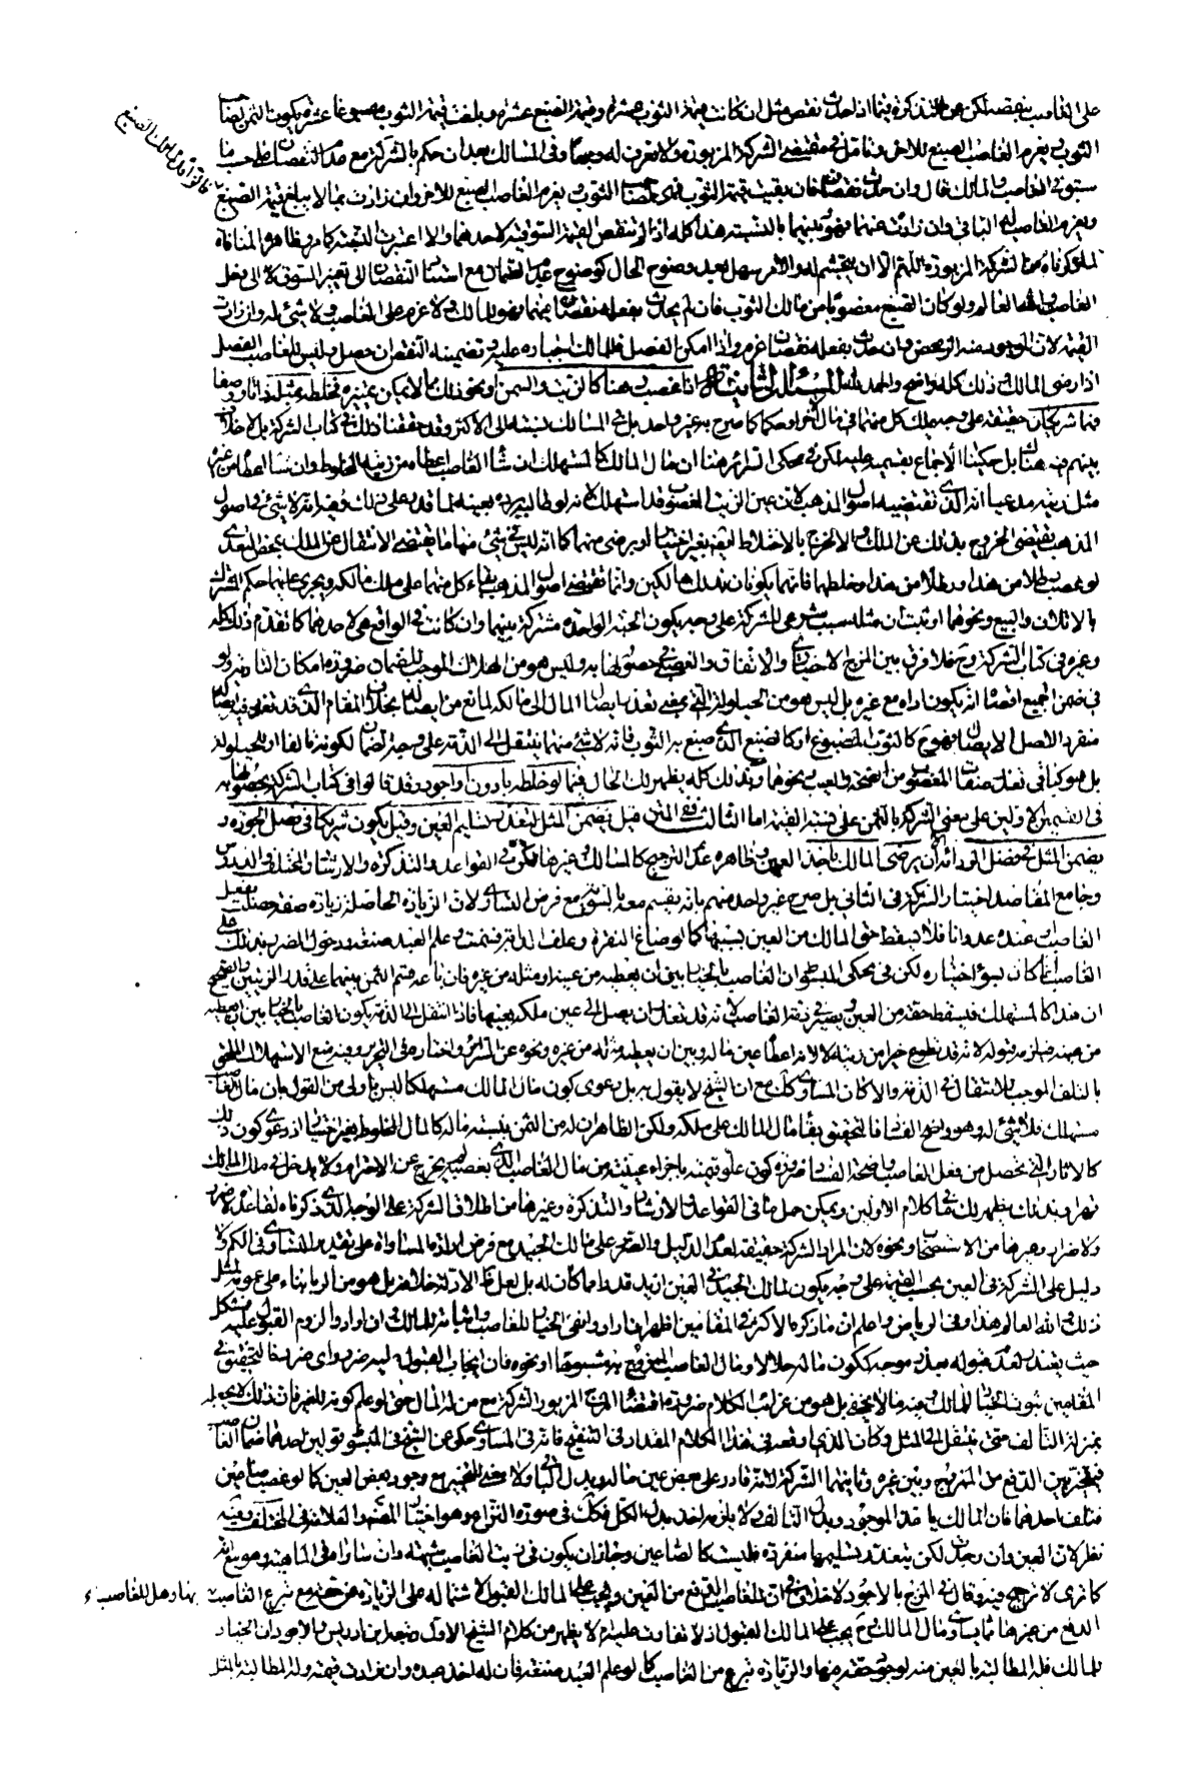 على الغاصب بنقصه لكن عن التذكرة فيما اذا حدث نقص مثل ان كانت قيمة الثوب عشرة وقيمة الصبغ عشرة وبلغت قيمة الثوب مصبوغا عشرة يكون الثمن لصاحب
الثوب ويغرم الغاصب الصبغ للاخر وفي المسالك بعد ان حكم بالشركة مع عدم النقصان
الغاصب والمالك قال وان حدث نقصان فان بقيت قيمة الثوب فهي لصاحب الثوب ويغرم الغاصب الصبغ للاخر وان زادت بما لا يبلغ قيمة الصبغ
ويغرم الغاصب له الباقي وان زادت عنهما فهو بينهما بالنسبة هذا كله اذا لم تنقص القيمة السوقية لاحدهما والا اعتبرت النسبة كما مر وظاهره المنافاة
لما ذكرناه من الشركة المزبورة اللهم الا ان
الغاصب والله العالم ولو كان الصبغ مغصوبا من مالك الثوب فان لم يحدث بفعله نقصان فهو للمالك ولا غرم على الغاصب ولا شيء له وان زادت
القيمة لان الموجود منه اثر محض وان حدث بفعله نقصان غرم واذا امكن الفصل فللمالك اجباره عليه وتضمينه النقص ان حصل وليس للغاصب الفصل
اذا رضى المالك وذلك كله واضح والحمد لله المسئلة الثانية اذا غصب دهنا كالزيت والسمن ونحو ذلك مما لا يمكن تميزه فخلطه بمثله ذاتا وصفا
فهما شريكان حقيقة على وجه يملك كل منهما في مال الاخر او حكما كما صرح به غير واحد بل في المسالك نسبته الى الاكثر وقد حققنا ذلك في كتاب الشركة بل لا خلاف
بينهم فيه هناك بل حكينا الاجماع بقسميه عليه لكن في محكى السرائر هنا ان مال المالك كالمستهلك ان شاء الغاصب اعطاه من زيته المخلوط وان شاء اعطاه من غيره
مثل زيته مدعيا انه الذي تقتضيه اصول المذهب لان عين الزيت المغصوب قد استهلك لانه لو طالبه برده بعينه لما قدر على ذلك وفيه انه لا شيء في اصول
المذهب يقتضي الخروج بذلك عن الملك
لو غصب رطلا من هذا ورطلا من هذا وخلطهما فانهما يكونان بذلك هالكين وانما تقتضى اصول المذهب بقاء كل منهما على ملك مالكه ويجري عليهما حكم المشترك
بالاتلاف والبيع ونحوهما او ثبت ان مثله سبب شرعي للشركة على وجه يكون الحبة الواحدة مشتركة بينهما وان كانت في الواقع هي لاحدهما كما تقدم ذلك كله
وغيره في كتاب الشركة وح فلا فرق بين المزج الاختياري والاتفاقي والغصبي في حصولها به وليس هو من الهلاك الموجب للضمان ضرورة امكان التادية ولو
في ضمن الجميع اقصاه انه يكون اداه مع غيره بل ليس هو من الحيلولة التي هي تعذر ايصال المال الى مالكه لمانع من ايصاله بخلاف المقام الذي قد تعذر فيه ايصاله
منفردا لا اصل الايصال فهو ح كالثوب المصبوغ او كالصبغ الذي صبغ به الثوب فانه لا شيء منهما ينتقل الى الذمة على وجه الضمان لكونه تالفا او للحيلولة
بل هو كما في نقل صفات المغصوب من الصحة والعيب ونحوهما وبذلك كله يظهر لك الحال فيما لو خلطه بادون او اجود وقد قالوا في كتاب الشركة بحصولها به
في القسمين الاولين على معنى الشركة بالثمن على نسبة القيمة اما الثالث ففي المتن قيل يضمن المثل لتعذر تسليم العين وقيل يكون شريكا في فضل الجودة و
يضمن المثل في فضل الرداءة الا ان يرضى المالك باخذ العين وظاهره عدم الترجيح كالمسالك وغيرها لكن في القواعد والتذكرة والارشاد والمختلف والدروس
وجامع المقاصد اختيار الشركة في الثاني بل صرح غير واحد منهم بانه يقسم معه بالسوية مع فرض التساوي لان الزيادة الحاصلة زيادة صفة حصلت بفعل
الغاصب او عنده عدوانا فلا يسقط حق المالك من العين بسببها كما لو صاغ النقرة وعلف الدابة فسمنت وعلم العبد صنعة ودخول الضرر بذلك على
الغاصب انما كان بسوء اختياره لكن في محكى المبسوط ان الغاصب بالخيار بين ان يعطيه من عينه او مثله من غيره فان باعه قسم الثمن بينهما على قدر الزيتين والصحيح
ان هذا كالمستهلك فيسقط حقه من العين ويصير في ذمة الغاصب لانه قد تعذر ان يصل الى عين ملكه بعينها فاذا انتقل الى الذمة يكون الغاصب بالخيار بين ان يعطيه
من عينه فيلزمه قبوله لانه قد تطوع خيرا من زيته لا لانه اعطاه عين ماله وبين ان يعطيه مثله من غيره ونحوه عن السرائر واختاره في التحرير وفيه منع الاستهلاك الملحق
بالتلف الموجب للانتقال الى الذمة والا كان المساوي كك مع ان الشيخ لا يقول به بل دعوى كون مال المالك مستهلكا ليس باولى من القول بان مال الغاصب
مستهلك فلا شيء له وهو واضح الفساد فالتحقيق بقاء مال المالك على ملكه ولكن الظاهر ان له من الثمن بنسبة ماله كالمال المخلوط بغير اختيار اذ دعوى كون ذلك
كالاثار التي تحصل من فعل الغاصب واضحة الفساد ضرورة كون علو قيمته باجزاء عينية من مال الغاصب الذي بغصبه لم يخرج عن الاحترام ولا يدخل في ملك المالك
قهرا وبذلك يظهر لك ما في كلام الاولين ويمكن حمل ما في القواعد والارشاد والتذكرة وغيرها من اطلاق الشركة على الوجه الذي ذكرناه لقاعدة لا ضرر
ولا ضرار وغيرها من الاستصحاب ونحوه لا ان المراد الشركة حقيقة لعدم الدليل
دليل على الشركة في العين بحسب القيمة على وجه يكون لمالك الجيد في العين ازيد قدرا مما كان له بل لعل ظاهر الادلة خلافه بل هو من الربا بناء على عمومه لمثل
ذلك والله العالم هذا وفي الرياض واعلم ان ما ذكره الاكثر في المقامين اظهر ان ارادوا نفي الخيار للغاصب واثباته للمالك وان ارادوا لزوم القبول عليه فمشكل
حيث يعتذر لعدم قبوله بعذر موجه ككون ماله حلالا ومال الغاصب الممزوج به مشبوها او نحوه فان ايجاب القبول عليه ضرر واي ضرر فالتحقيق في
المقامين ثبوت الخيار للمالك وفيه ما لا يخفى بل هو من غرائب الكلام ضرورة اقتضاء المزج المزبور الشركة مع من له المال حتى لو علم كونه للغير فان ذلك لا يجعله
بمنزلة التالف حتى ينتقل الى المثل وكان الذي اوقعه في هذا الكلام المقداد في التنقيح فانه في المساوي حكى عن الشيخ في المبسوط قولين احدهما ضمان الغاصب
فيتخير بين الدفع من الممزوج وبين غيره وثانيهما الشركة لانه قادر على بعض عين ماله وبدل الباقي ولا معنى للتخيير مع وجود بعض العين كما لو غصب صاعين
فتلف احدهما فان المالك ياخذ الموجود وبدل التالف ولا يلزمه اخذ بدل الكل فكك في صورة النزاع وهو اختيار المصنف والعلامة في المختلف وفيه
نظر لان العين وان وجدت لكن يتعذر تسليمها منفردة فليست كالصاعين
كما ترى لا ترجيح فيه وقال في المزج بالاجود لا خلاف في ان للغاصب الدفع من العين ويجب على المالك القبول لاشتماله على الزيادة عن حقه مع تبرع الغاصب بها وهل للغاصب
الدفع من غيرها مما يساوي مال المالك وح يجب على المالك القبول اذ لا تفاوت عليه ام لا يظهر من كلام الشيخ الاول ضعفه ابن ادريس بالاجود ان الخيار
للمالك فله المطالبة بالعين منه لوجود حقه فيها والزيادة تبرع من الغاصب كما لو علم العبد صنعة فان له اخذ عبده وان زادت قيمته وله المطالبة بالمثل